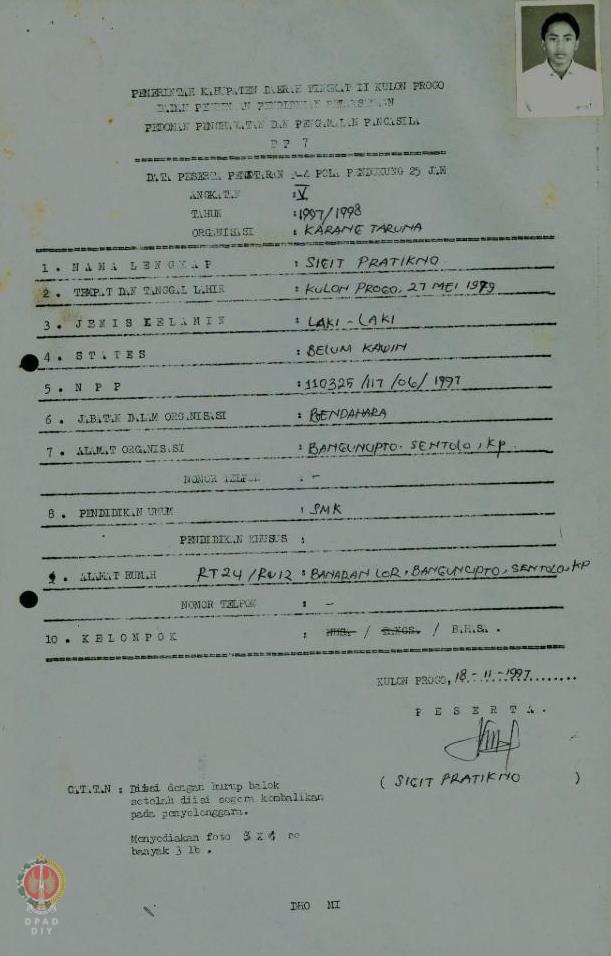 PEMERINTAH KABUPATEN DAERAH TINGKAT II KULON PROGO
BADAN PEMBINAAN PENDIDIKAN PELAKSANAAN
PEDOMAN PENGHAYATAN DAN PENGAMALAN PANCASILA
B P 7
DATA PESERTA PENATARAN P-4 POLA PENDUKUNG 25 JAM
ANGKATAN : V
TAHUN : 1997/1998
ORGANISASI : KARANG TARUNA
1. NAMA LENGKAP : SIGIT PRATIKNO
2. TEMPAT DAN TANGGAL LAHIR : KULON PROGO, 27 MEI 1979
3. JENIS KELAMIN : LAKI-LAKI
4. STATES : BELUM KAWIN
5. N P P : 110325/117/06/1997
6. JABATAN DALAM ORGANISASI : BENDAHARA
7. ALAMAT ORGANISASI : BANGUNCIPTO. SENTOLO, KP.
NOMOR TELPON : -
8. PENDIDIKAN UMUM : SMK
PENDIDIKAN KHUSUS :
9. ALAMAT RUMAH RT24/RW12 : BANARAN LOR, BANGUNCIPTO, SENTOLO, KP
NOMOR TELPON : -
10. KELOMPOK : / / B.H.S.A.
KULON PROGO, 18-11-1997
P E S E R T A.
( SIGIT PRATIKNO )
C.T.T.N : Diisi dengan hurup balok
setelah diisi segera kembalikan
pada penyelenggara.
Menyediakan foto 3 X 4 se
banyak 3 lb.
DHO MI
DPAD
DIY